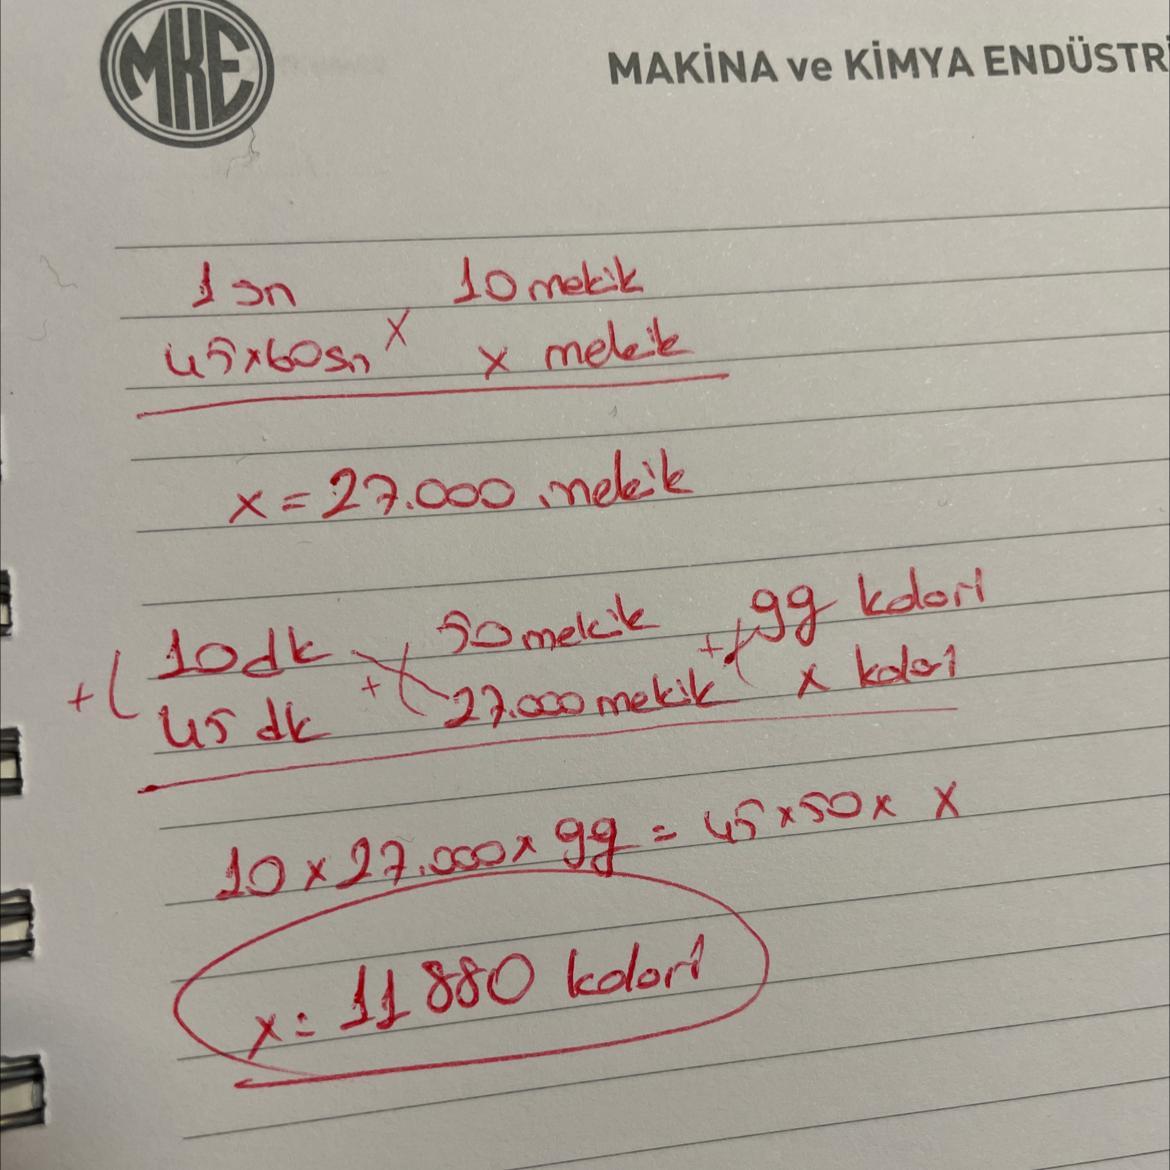 MKE
MAKİNA ve KİMYA ENDÜSTRİ
1 sn 10 mekik
45x60sn x x mekik
x = 27.000 mekik
10 dk 50 mekik 99 kalori
45 dk 27.000 mekik x kalori
10 x 27.000 x 99 = 45 x 50 x x
x = 11880 kalori